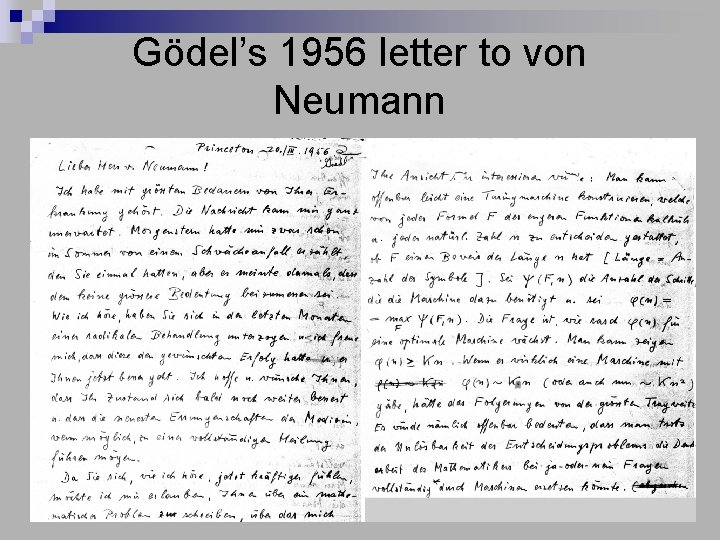 Gödel’s 1956 letter to von
Neumann
Princeton 20./III. 1956
Lieber Herr v. Neumann!
Ich habe mit grösstem Bedauern von Ihrer Er-
krankung gehört. Die Nachricht kam mir ganz
unerwartet. Morgenstern hatte mir zwar schon
im Sommer von einem Schwächeanfall erzählt,
den Sie einmal hatten, aber er meinte damals, dass
dem keine grössere Bedeutung beizumessen sei.
Wie ich höre, haben Sie sich in den letzten Monaten
einer radikalen Behandlung unterzogen u. ich freue
mich, dass diese den gewünschten Erfolg hatte u. es
Ihnen jetzt besser geht. Ich hoffe u. wünsche Ihnen,
dass Ihr Zustand sich bald noch weiter bessert
u. dass die neuesten Errungenschaften der Medizin,
wenn möglich, zu einer vollständigen Heilung
führen mögen.
Da Sie sich, wie ich höre, jetzt kräftiger fühlen,
möchte ich mir erlauben, Ihnen über ein mathe-
matisches Problem zu schreiben, über das mich
Ihre Ansicht sehr interessieren würde: Man kann
offenbar leicht eine Turingmaschine konstruieren, welche
von jeder Formel F des engeren Funktionenkalküls
u. jeder natürl. Zahl n zu entscheiden gestattet,
ob F einen Beweis der Länge n hat [Länge = An-
zahl der Symbole]. Sei ψ(F,n) die Anzahl der Schritte
die die Maschine dazu benötigt u. sei φ(n) =
= max ψ(F,n). Die Frage ist, wie rasch φ(n) für
F
eine optimale Maschine wächst. Man kann zeigen
φ(n) ≥ Kn. Wenn es wirklich eine Maschine mit
φ(n) ~ Kn (oder auch nur ~ Kn²)
gäbe, hätte das Folgerungen von der grössten Tragweite
Es würde nämlich offenbar bedeuten, dass man trotz
der Unlösbarkeit des Entscheidungsproblems die Denk-
arbeit des Mathematikers bei ja-oder-nein Fragen
vollständig* durch Maschinen ersetzen könnte.